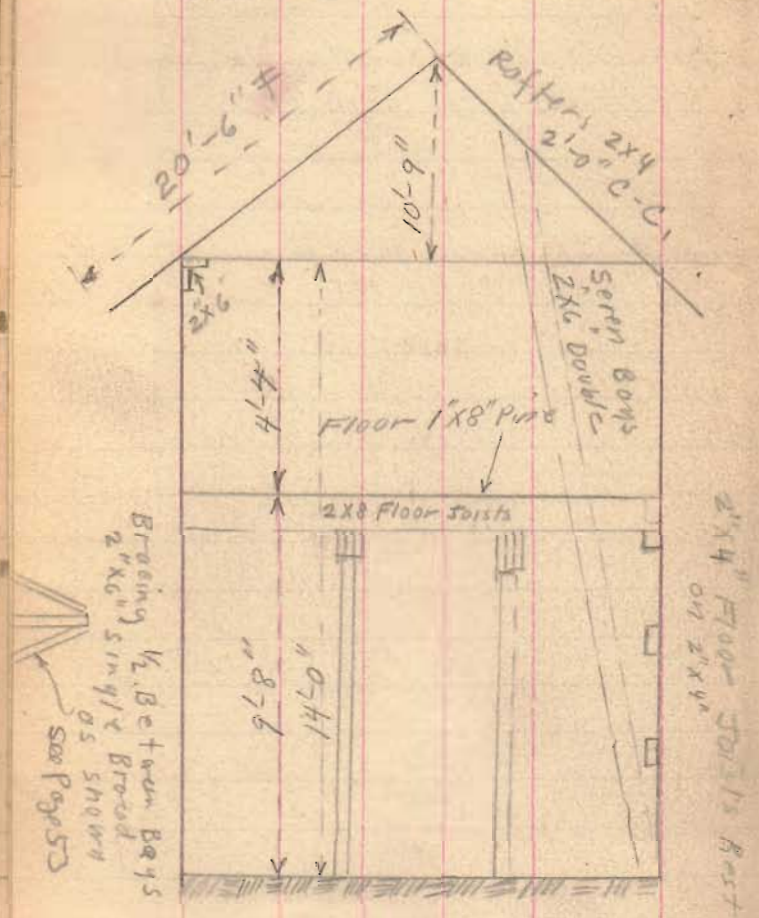 20'-6" ±
Rafters 2x4
2'-0" C-C,
10'-6"
2"x6"
Seven Bays
2"x6" Double
4'-4"
Floor 1"x8" Pine
2x8 Floor Joists
9'-8"
14'-0"
2"x4" Floor Joists Rest
on 2"x4"
Bracing 1/2 Between Bays
2"x6" single Braced
as shown
see Page 53